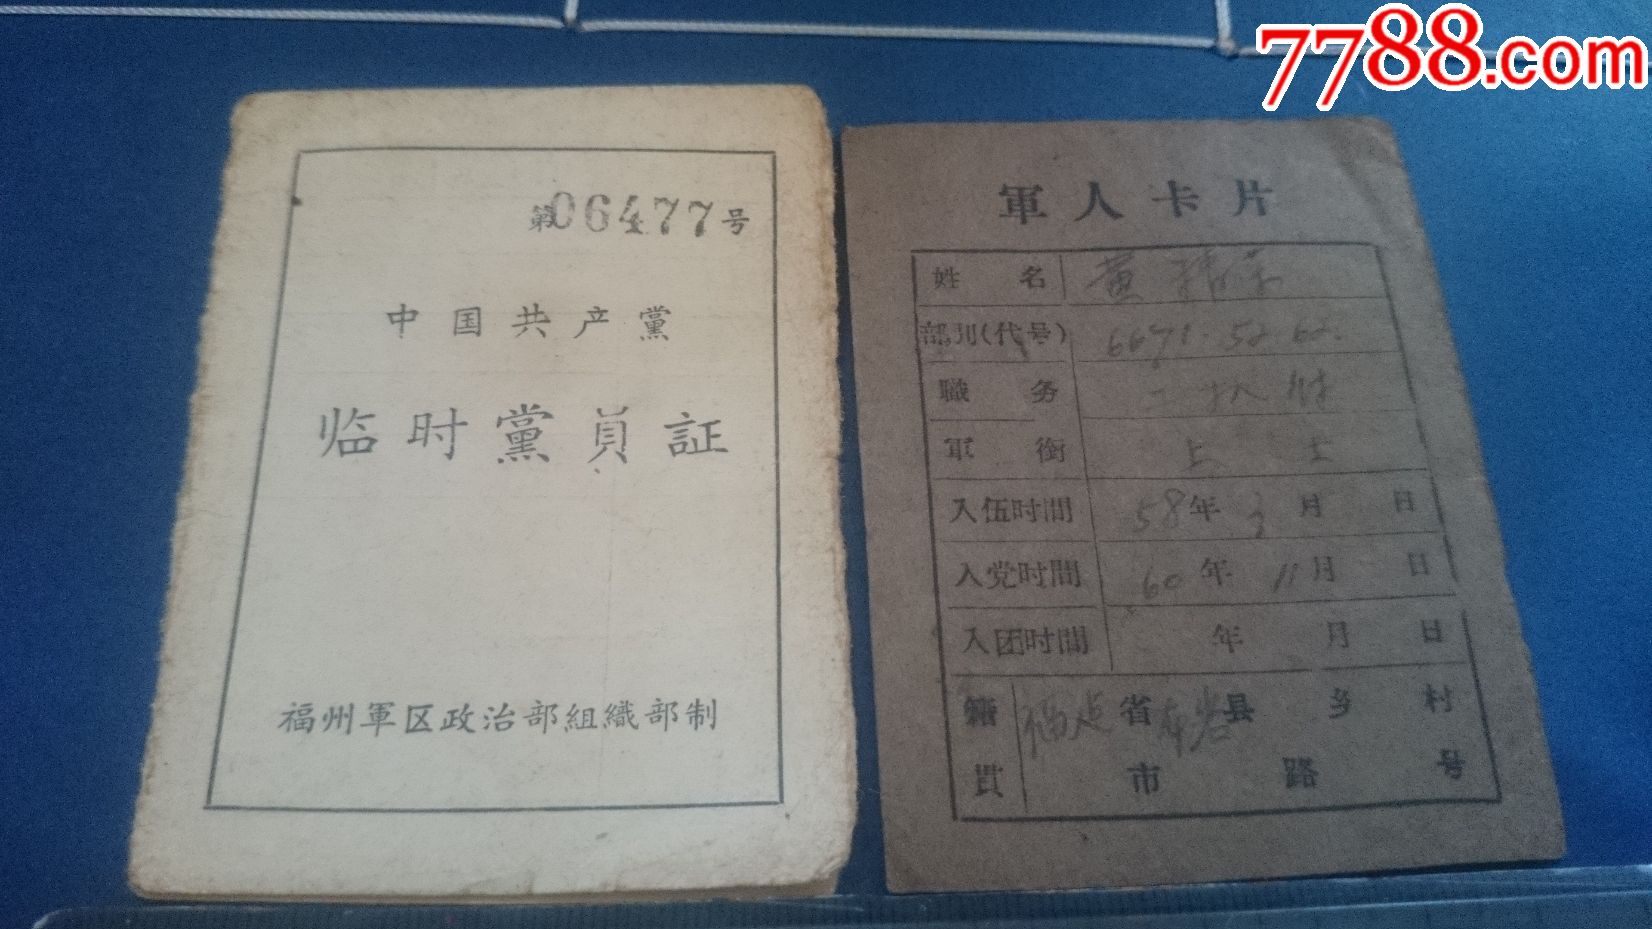 7788.com
第06477号
中国共产黨
临时黨員証
福州軍区政治部組織部制
軍人卡片
姓名 黄
部别(代号) 6671.52.62.
職务
軍銜 上士
入伍时間 58年3月 日
入党时間 60年11月 日
入团时間 年 月 日
籍貫 福建省 县 乡 村
市 路 号